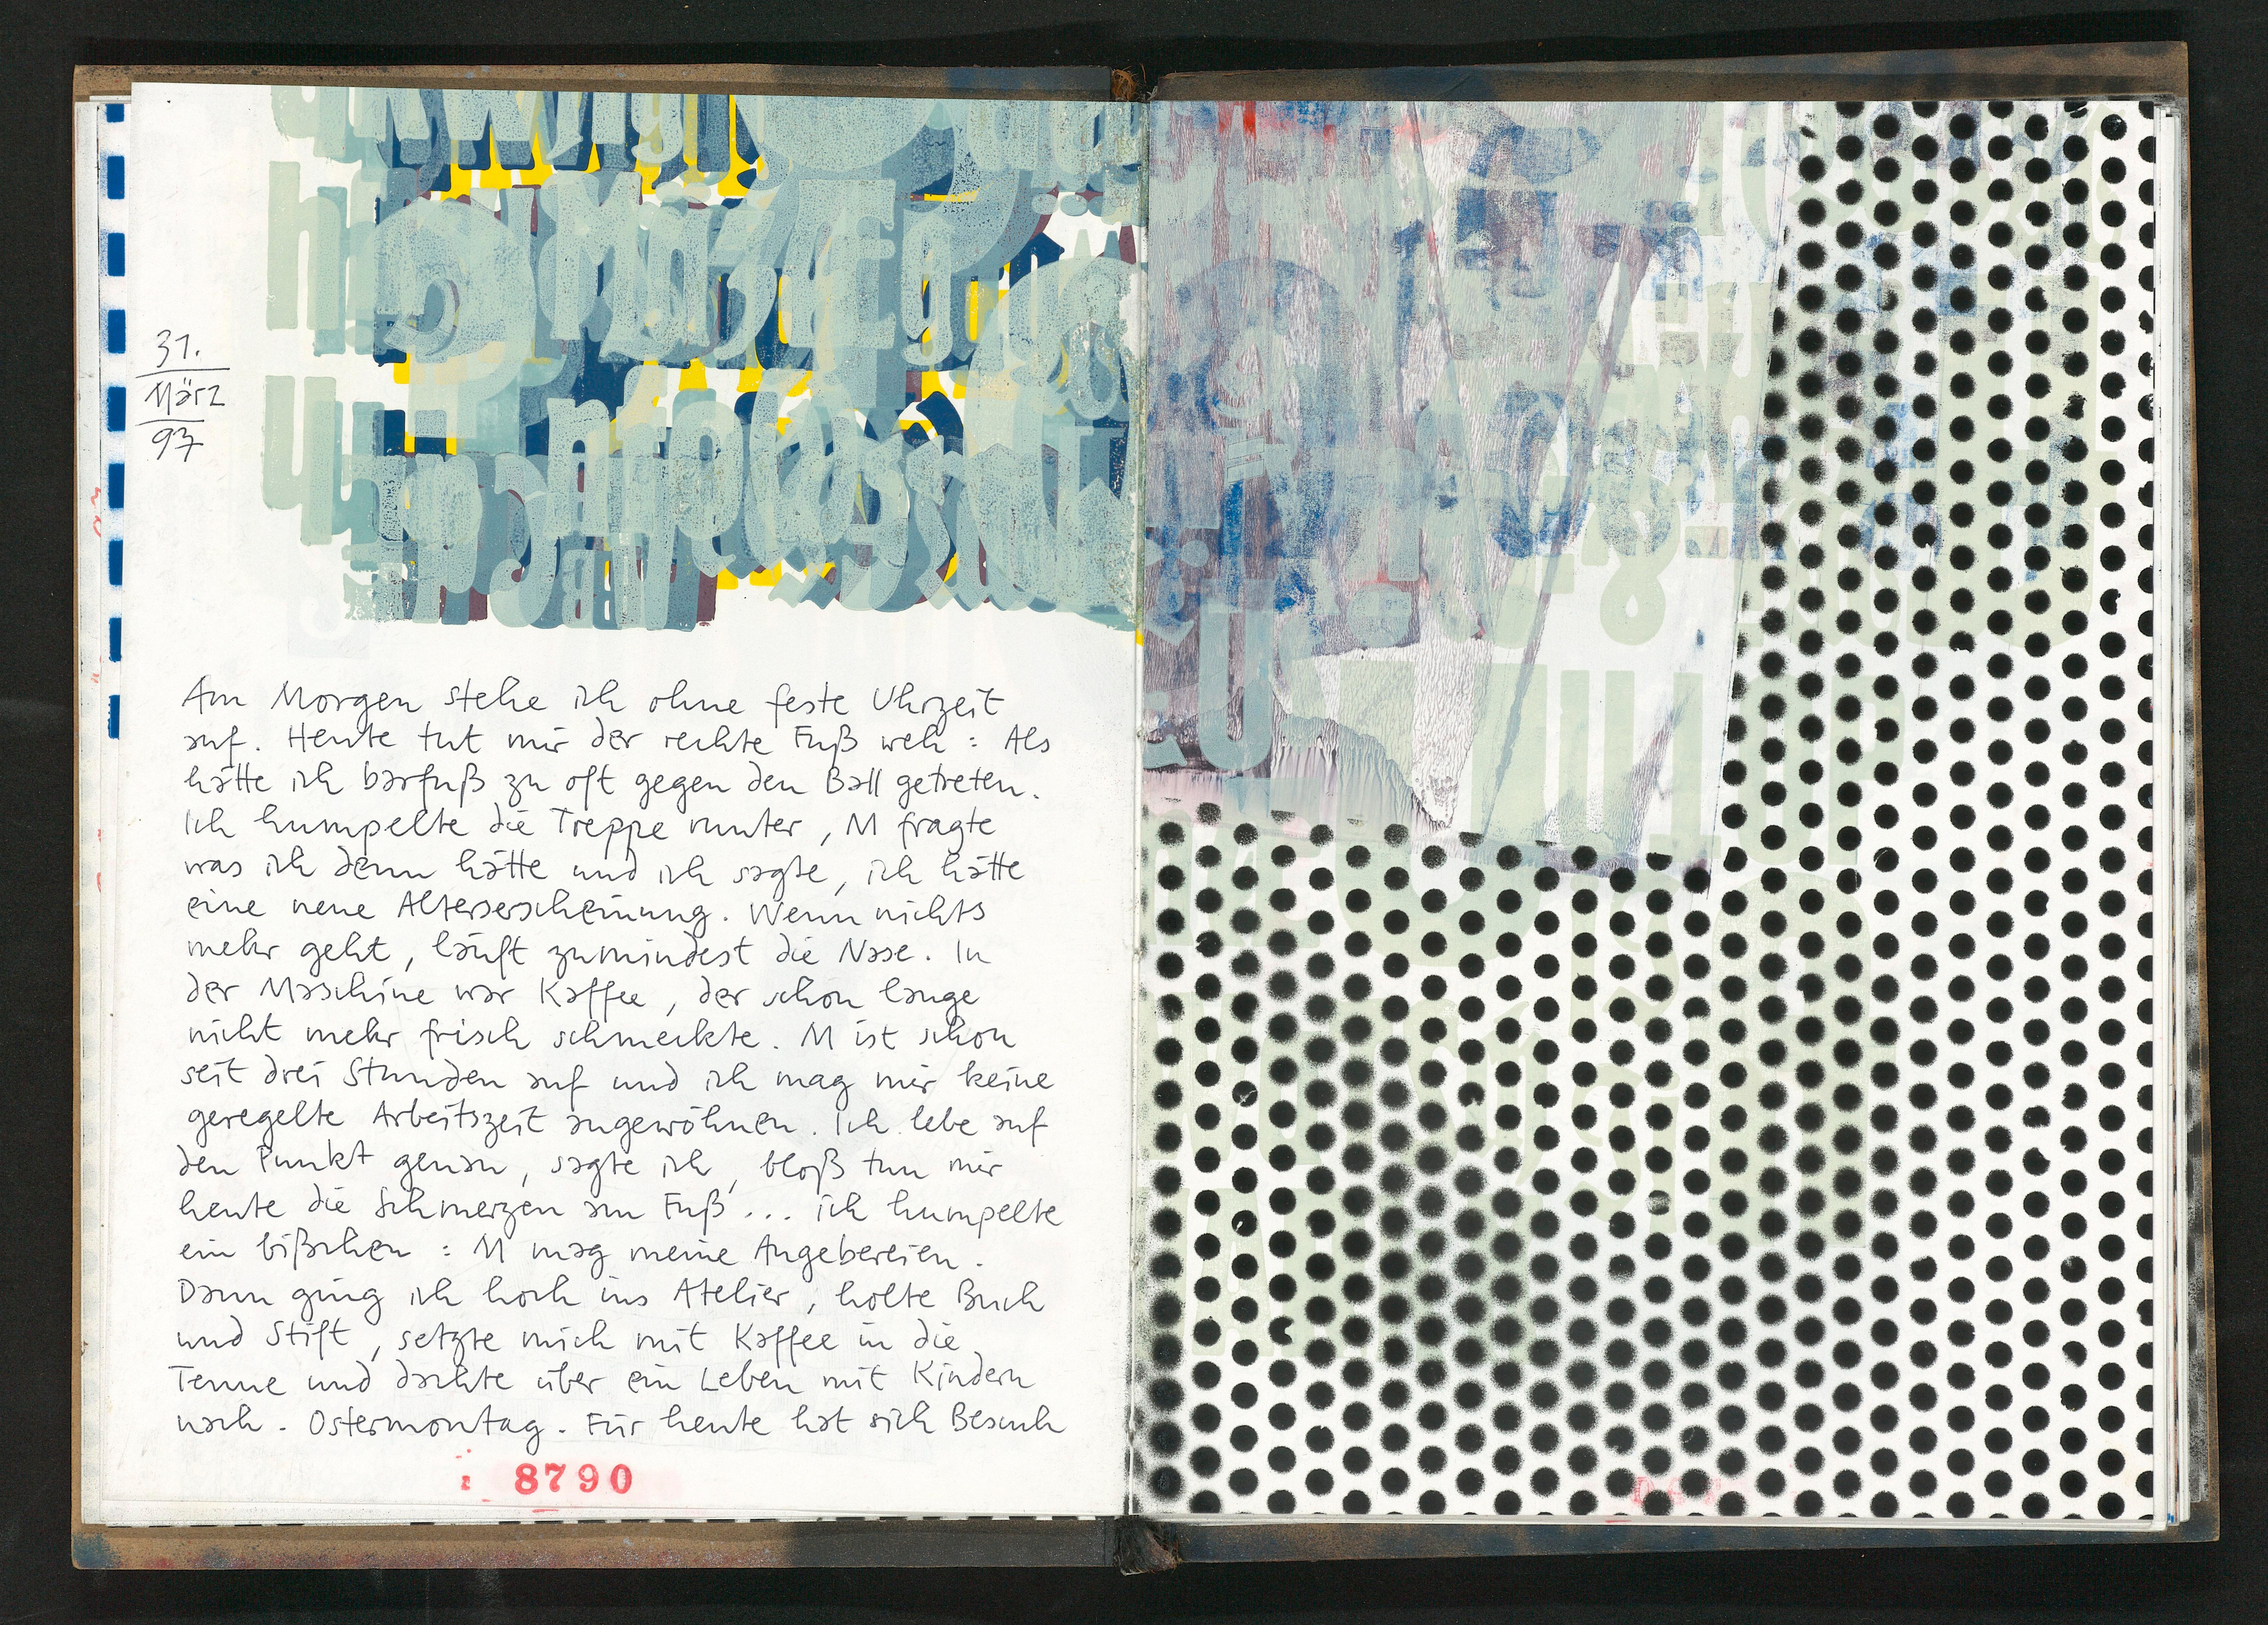 31.
März
97
Am Morgen stehe ich ohne feste Uhrzeit
auf. Heute tut mir der rechte Fuß weh : Als
hätte ich barfuß zu oft gegen den Ball getreten.
Ich humpelte die Treppe runter, M fragte
was ich denn hätte und ich sagte, ich hätte
eine neue Alterserscheinung. Wenn nichts
mehr geht, läuft zumindest die Nase. In
der Maschine war Kaffee, der schon lange
nicht mehr frisch schmeckte. M ist schon
seit drei Stunden auf und ich mag mir keine
geregelte Arbeitszeit angewöhnen. Ich lebe auf
den Punkt genau, sagte ich, bloß tun mir
heute die Schmerzen am Fuß... ich humpelte
ein bißchen : M mag meine Angebereien.
Dann ging ich hoch ins Atelier, holte Buch
und Stift, setzte mich mit Kaffee in die
Tenne und dachte über ein Leben mit Kindern
nach. Ostermontag. Für heute hat sich Besuch
8790